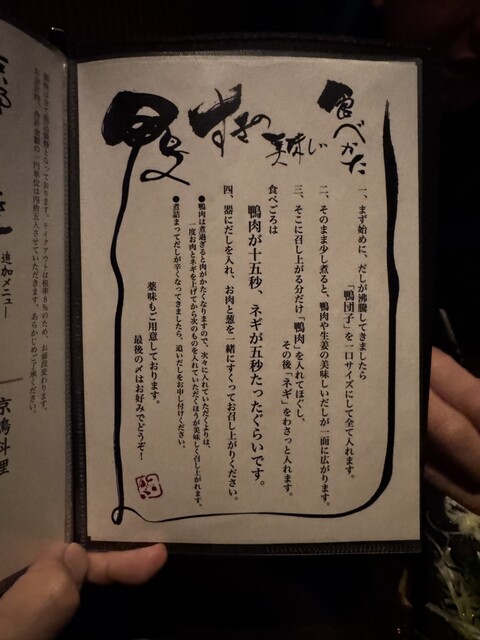 鴨すきの美味しい食べかた
一、まず始めに、だしが沸騰してきましたら
「鴨団子」を一口サイズにして全て入れます。
二、そのまま少し煮ると、鴨肉や生姜の美味しいだしが一面に広がります。
三、そこに召し上がる分だけ「鴨肉」を入れてほぐし、
その後「ネギ」をわさっと入れます。
食べごろは
鴨肉が十五秒、ネギが五秒たったぐらいです。
四、器にだしを入れ、お肉と葱を一緒にすくってお召し上がりください。
●鴨肉は煮過ぎると肉がかたくなりますので、次々に入れていただくよりは、
一度お肉とネギを上げてから次のものを入れていただくほうが美味しく召し上がれます。
●煮詰まってだしが辛くなってきましたら、追いだしをお申し付けください。
薬味もご用意しております。
最後の〆はお好みでどうぞ！
追加メニュー
京鴨料理